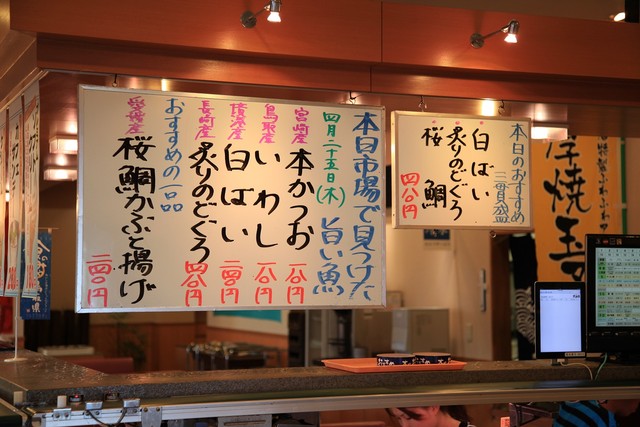 本日市場で見つけた
四月二十五日(木) 旨い魚
宮崎産 本かつお 一八〇円
鳥取産 いわし 一八〇円
白ばい 二四〇円
長崎産 炙りのどぐろ 四八〇円
おすすめの一品
愛媛産 桜鯛かぶと揚げ 二四〇円
本日のおすすめ
三貫盛
白ばい
炙りのどぐろ
桜鯛 四八〇円
厚焼玉